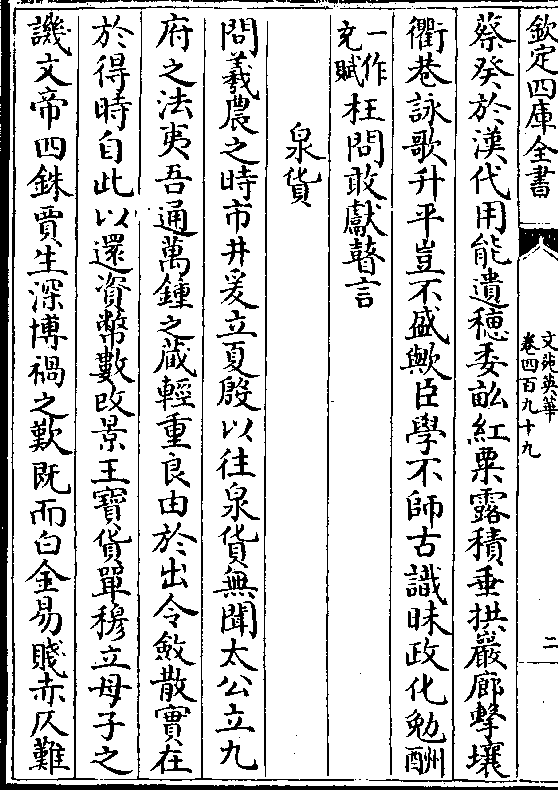 欽定四庫全書
文苑英華
卷四百九十九
二
蔡癸於漢代用能遺穗委畝紅粟露積垂拱巖廊擊壤
衢巷詠歌升平豈不盛歟臣學不師古識昧政化勉酬
一作
充賦
枉問敢獻瞽言
泉貨
問羲農之時市井爰立夏殷以往泉貨無聞太公立九
府之法夷吾通萬鍾之蔵輕重良由於出令斂散實在
於得時自此以還資幣數改景王寶貨單穆立母子之
譏文帝四銖賈生深博禍之歎既而白金易賤赤仄難